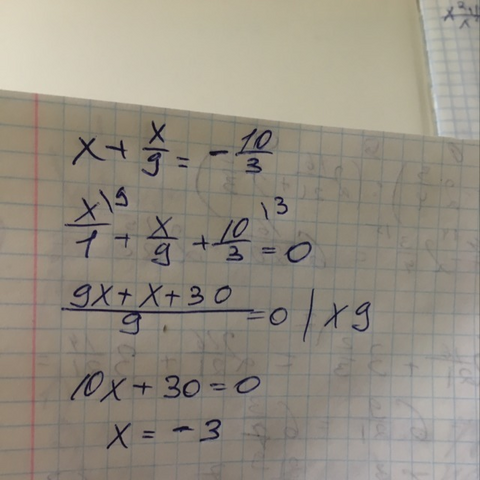 x + x/9 = - 10/3
x/1 \9 + x/9 + 10/3 \3 = 0
9x + x + 30 / 9 = 0 | x 9
10x + 30 = 0
x = - 3